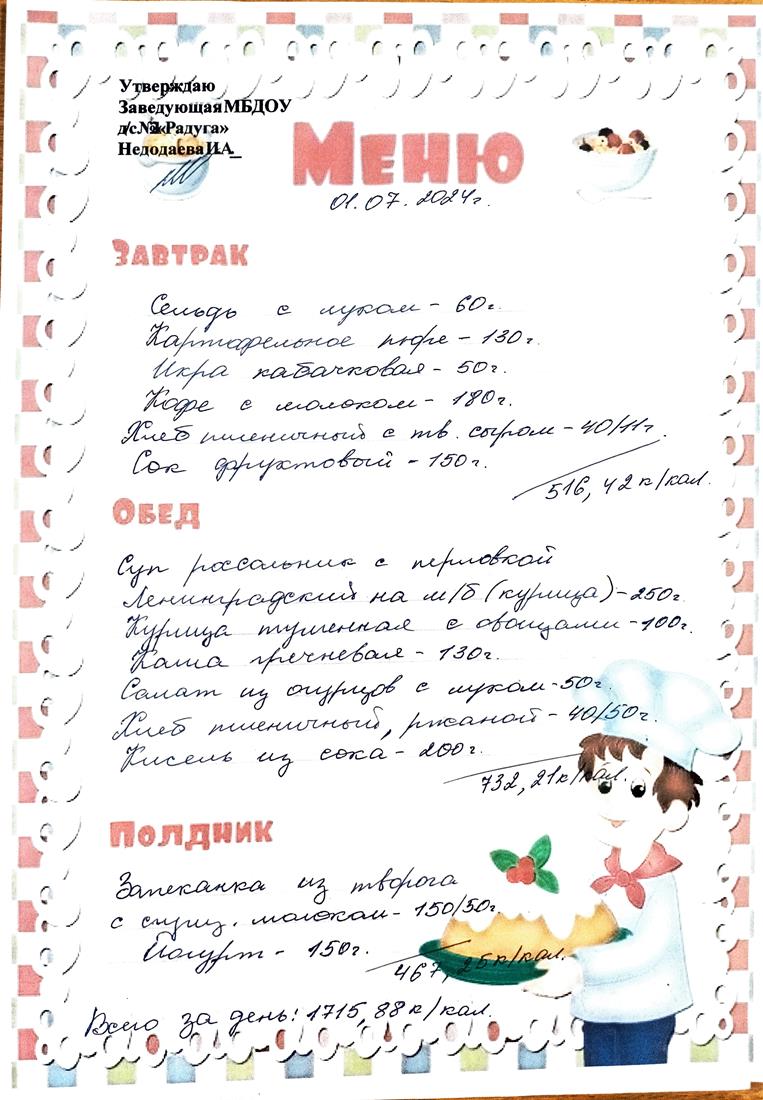 Утверждаю
Заведующая МБДОУ
д/с №3 «Радуга»
Недодаева И.А_
Меню
01.07.2024г.
Завтрак
Сельдь с луком - 60г.
Картофельное пюре - 130г.
Икра кабачковая - 50г.
Кофе с молоком - 180г.
Хлеб пшеничный с тв. сыром - 40/11г.
Сок фруктовый - 150г.
516,42к/кал.
Обед
Суп рассольник с перловкой
Ленинградский на м/б (курица) - 250г.
Курица тушенная с овощами - 100г.
Каша гречневая - 130г.
Салат из огурцов с луком - 50г.
Хлеб пшеничный, ржаной - 40/50г.
Кисель из сока - 200г.
732,21к/кал.
Полдник
Запеканка из творога
с сгущ. молоком - 150/50г.
Йогурт - 150г.
467,25к/кал.
Всего за день: 1715,88к/кал.